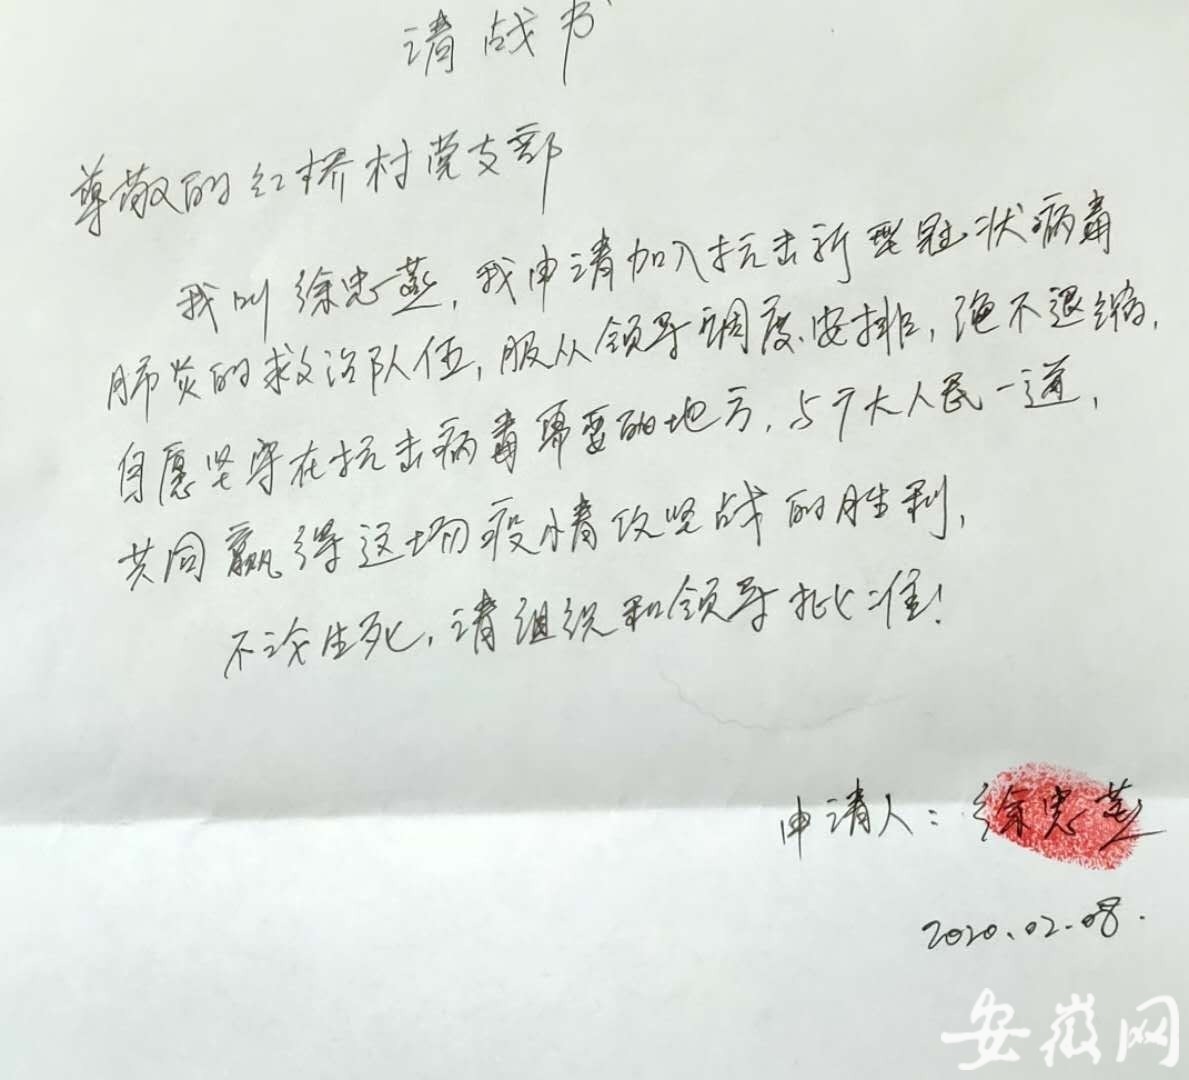 请战书
尊敬的红桥村党支部
我叫徐忠燕，我申请加入抗击新型冠状病毒
肺炎的救治队伍，服从领导调度、安排，绝不退缩，
自愿坚守在抗击病毒需要的地方，与广大人民一道，
共同赢得这场疫情攻坚战的胜利，
不论生死，请组织和领导批准！
申请人：徐忠燕
2020.02.08.
安徽网